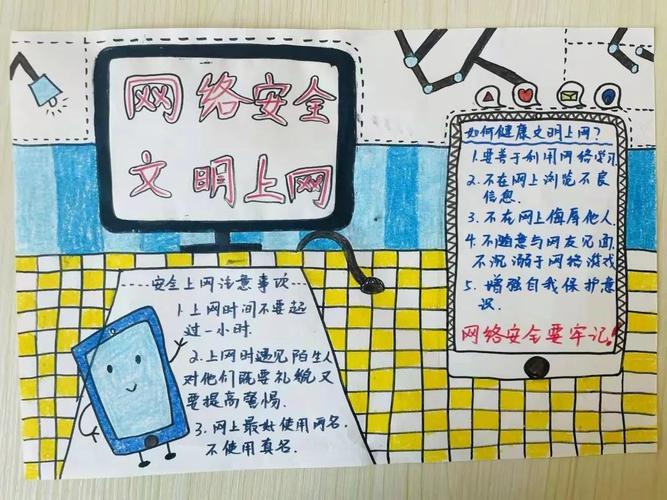 网络安全
文明上网
安全上网注意事项
1.上网时间不要超
过一小时.
2.上网时遇见陌生人
对他们既要礼貌又
要提高警惕.
3.网上最好使用网名,
不使用真名.
如何健康文明上网?
1.要善于利用网络学习
2.不在网上浏览不良
信息.
3.不在网上侮辱他人.
4.不随意与网友见面,
不沉溺于网络游戏
5.增强自我保护意
识.
网络安全要牢记!